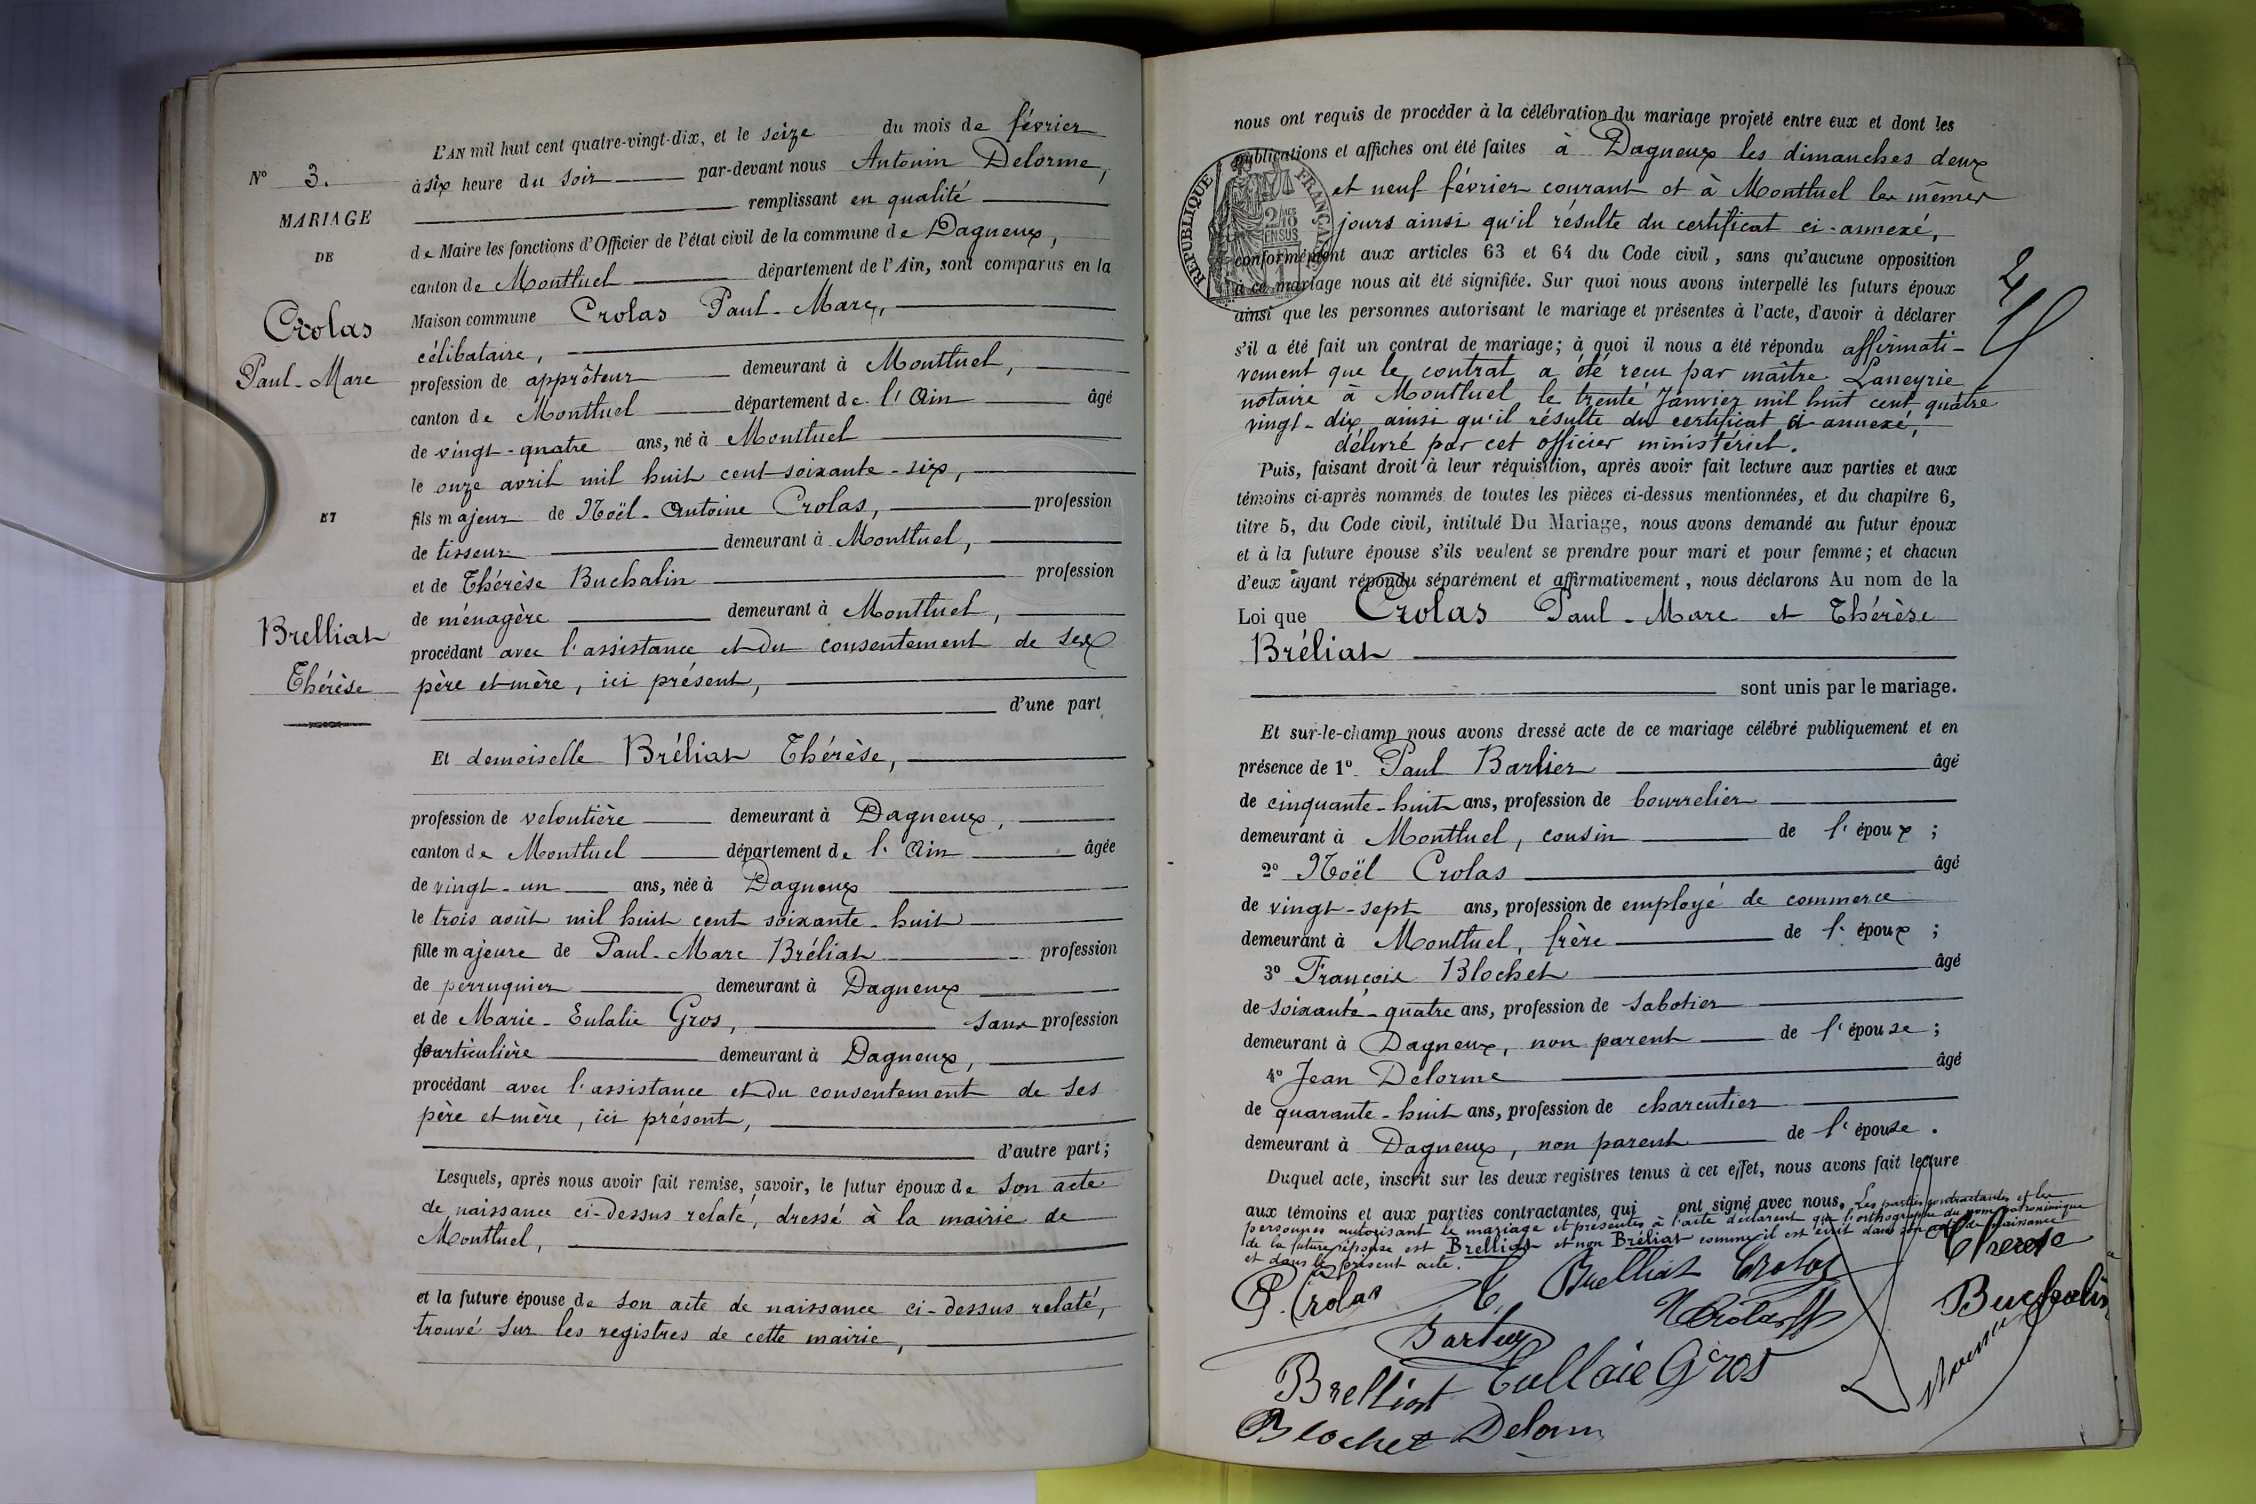 N° 3.
MARIAGE
DE
Crolas
Paul-Marc
ET
Brelliat
Thérèse
L'AN mil huit cent quatre-vingt-dix, et le seize du mois de février
à six heure du soir par-devant nous Antonin Delorme,
remplissant en qualité
de Maire les fonctions d'Officier de l'état civil de la commune de Dagneux,
canton de Montluel département de l'Ain, sont comparus en la
Maison commune Crolas Paul-Marc,
célibataire,
profession de apprêteur demeurant à Montluel,
canton de Montluel département de l'Ain âgé
de vingt-quatre ans, né à Montluel
le onze avril mil huit cent soixante-six,
fils majeur de Noël-Antoine Crolas, profession
de tisseur demeurant à Montluel,
et de Thérèse Buchalin profession
de ménagère demeurant à Montluel,
procédant avec l'assistance et du consentement de ses
père et mère, ici présent,
d'une part
Et demoiselle Bréliat Thérèse,
profession de veloutière demeurant à Dagneux,
canton de Montluel département de l'Ain âgée
de vingt-un ans, née à Dagneux
le trois août mil huit cent soixante-huit
fille majeure de Paul-Marc Bréliat profession
de perruquier demeurant à Dagneux
et de Marie-Eulalie Gros, sans profession
particulière demeurant à Dagneux,
procédant avec l'assistance et du consentement de ses
père et mère, ici présent,
d'autre part;
Lesquels, après nous avoir fait remise, savoir, le futur époux de son acte
de naissance ci-dessus relaté, dressé à la mairie de
Montluel,
et la future épouse de son acte de naissance ci-dessus relaté,
trouvé sur les registres de cette mairie,
nous ont requis de procéder à la célébration du mariage projeté entre eux et dont les
publications et affiches ont été faites à Dagneux les dimanches deux
et neuf février courant et à Montluel les mêmes
jours ainsi qu'il résulte du certificat ci-annexé,
conformément aux articles 63 et 64 du Code civil, sans qu'aucune opposition
à ce mariage nous ait été signifiée. Sur quoi nous avons interpellé les futurs époux
ainsi que les personnes autorisant le mariage et présentes à l'acte, d'avoir à déclarer
s'il a été fait un contrat de mariage; à quoi il nous a été répondu affirmati-
vement que le contrat a été reçu par maître Laneyrie
notaire à Montluel le trente Janvier mil huit cent quatre
vingt-dix ainsi qu'il résulte du certificat ci-annexé,
délivré par cet officier ministériel.
RÉPUBLIQUE FRANÇAISE
Puis, faisant droit à leur réquisition, après avoir fait lecture aux parties et aux
témoins ci-après nommés de toutes les pièces ci-dessus mentionnées, et du chapitre 6,
titre 5, du Code civil, intitulé Du Mariage, nous avons demandé au futur époux
et à la future épouse s'ils veulent se prendre pour mari et pour femme; et chacun
d'eux ayant répondu séparément et affirmativement, nous déclarons Au nom de la
Loi que Crolas Paul-Marc et Thérèse
Bréliat
sont unis par le mariage.
Et sur-le-champ nous avons dressé acte de ce mariage célébré publiquement et en
présence de 1° Paul Barlier âgé
de cinquante-huit ans, profession de bourrelier
demeurant à Montluel, cousin de l'époux;
2° Noël Crolas âgé
de vingt-sept ans, profession de employé de commerce
demeurant à Montluel, frère de l'époux;
3° François Blochet âgé
de soixante-quatre ans, profession de sabotier
demeurant à Dagneux, non parent de l'épouse;
4° Jean Delorme âgé
de quarante-huit ans, profession de charcutier
demeurant à Dagneux, non parent de l'épouse.
Duquel acte, inscrit sur les deux registres tenus à cet effet, nous avons fait lecture
aux témoins et aux parties contractantes, qui ont signé avec nous. Les parties contractantes et les
personnes autorisant le mariage et présentes à l'acte déclarent que l'orthographe du nom patronimique
de la future épouse est Brelliat et non Bréliat comme il est écrit dans son acte de naissance
et dans le présent acte.
P. Crolas T. Brelliat Crolas Therese
Buchalin
N Crolas
Barlier
Brelliat Eullaie Gros
Blochet Delorm